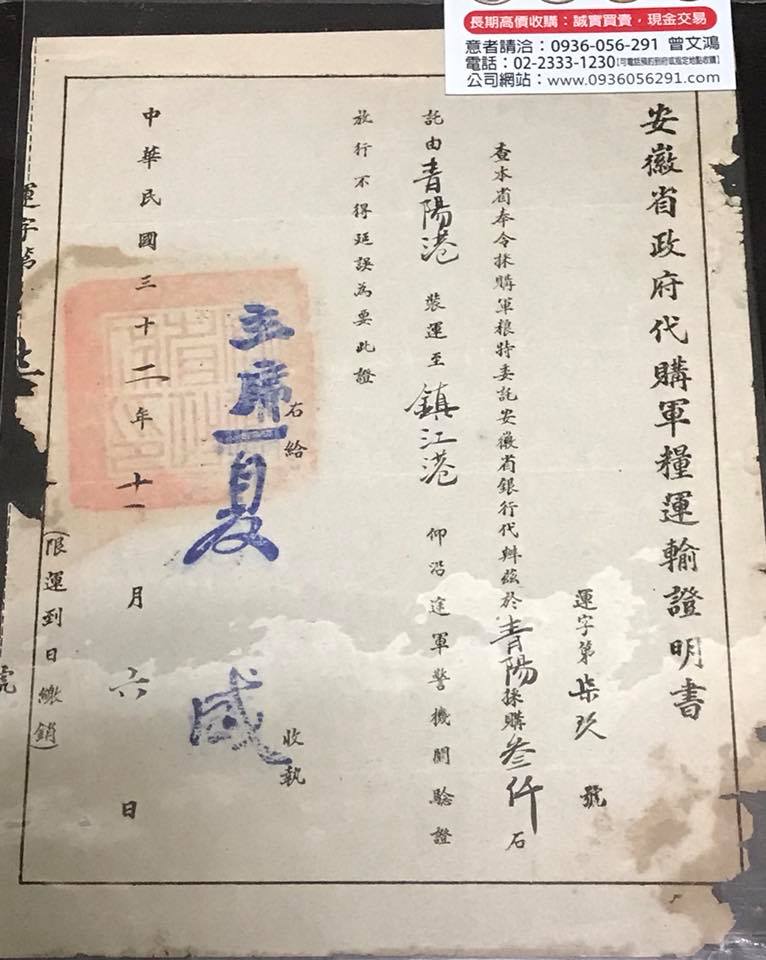 長期高價收購：誠實買賣，現金交易
意者請洽：0936-056-291 曾文鴻
電話：02-2333-1230【可電話預約到府或指定地點收購】
公司網站：www.0936056291.com
安徽省政府代購軍糧運輸證明書
運字第柒玖號
查本省奉令採購軍粮特委託安徽省銀行代辦茲於青陽採購叁仟石
託由青陽港裝運至鎮江港仰沿途軍警機關驗證
放行不得延誤為要此證
右給
收執
主席夏
威
中華民國三十二年十一月六日
(限運到日繳銷)
運字第
號